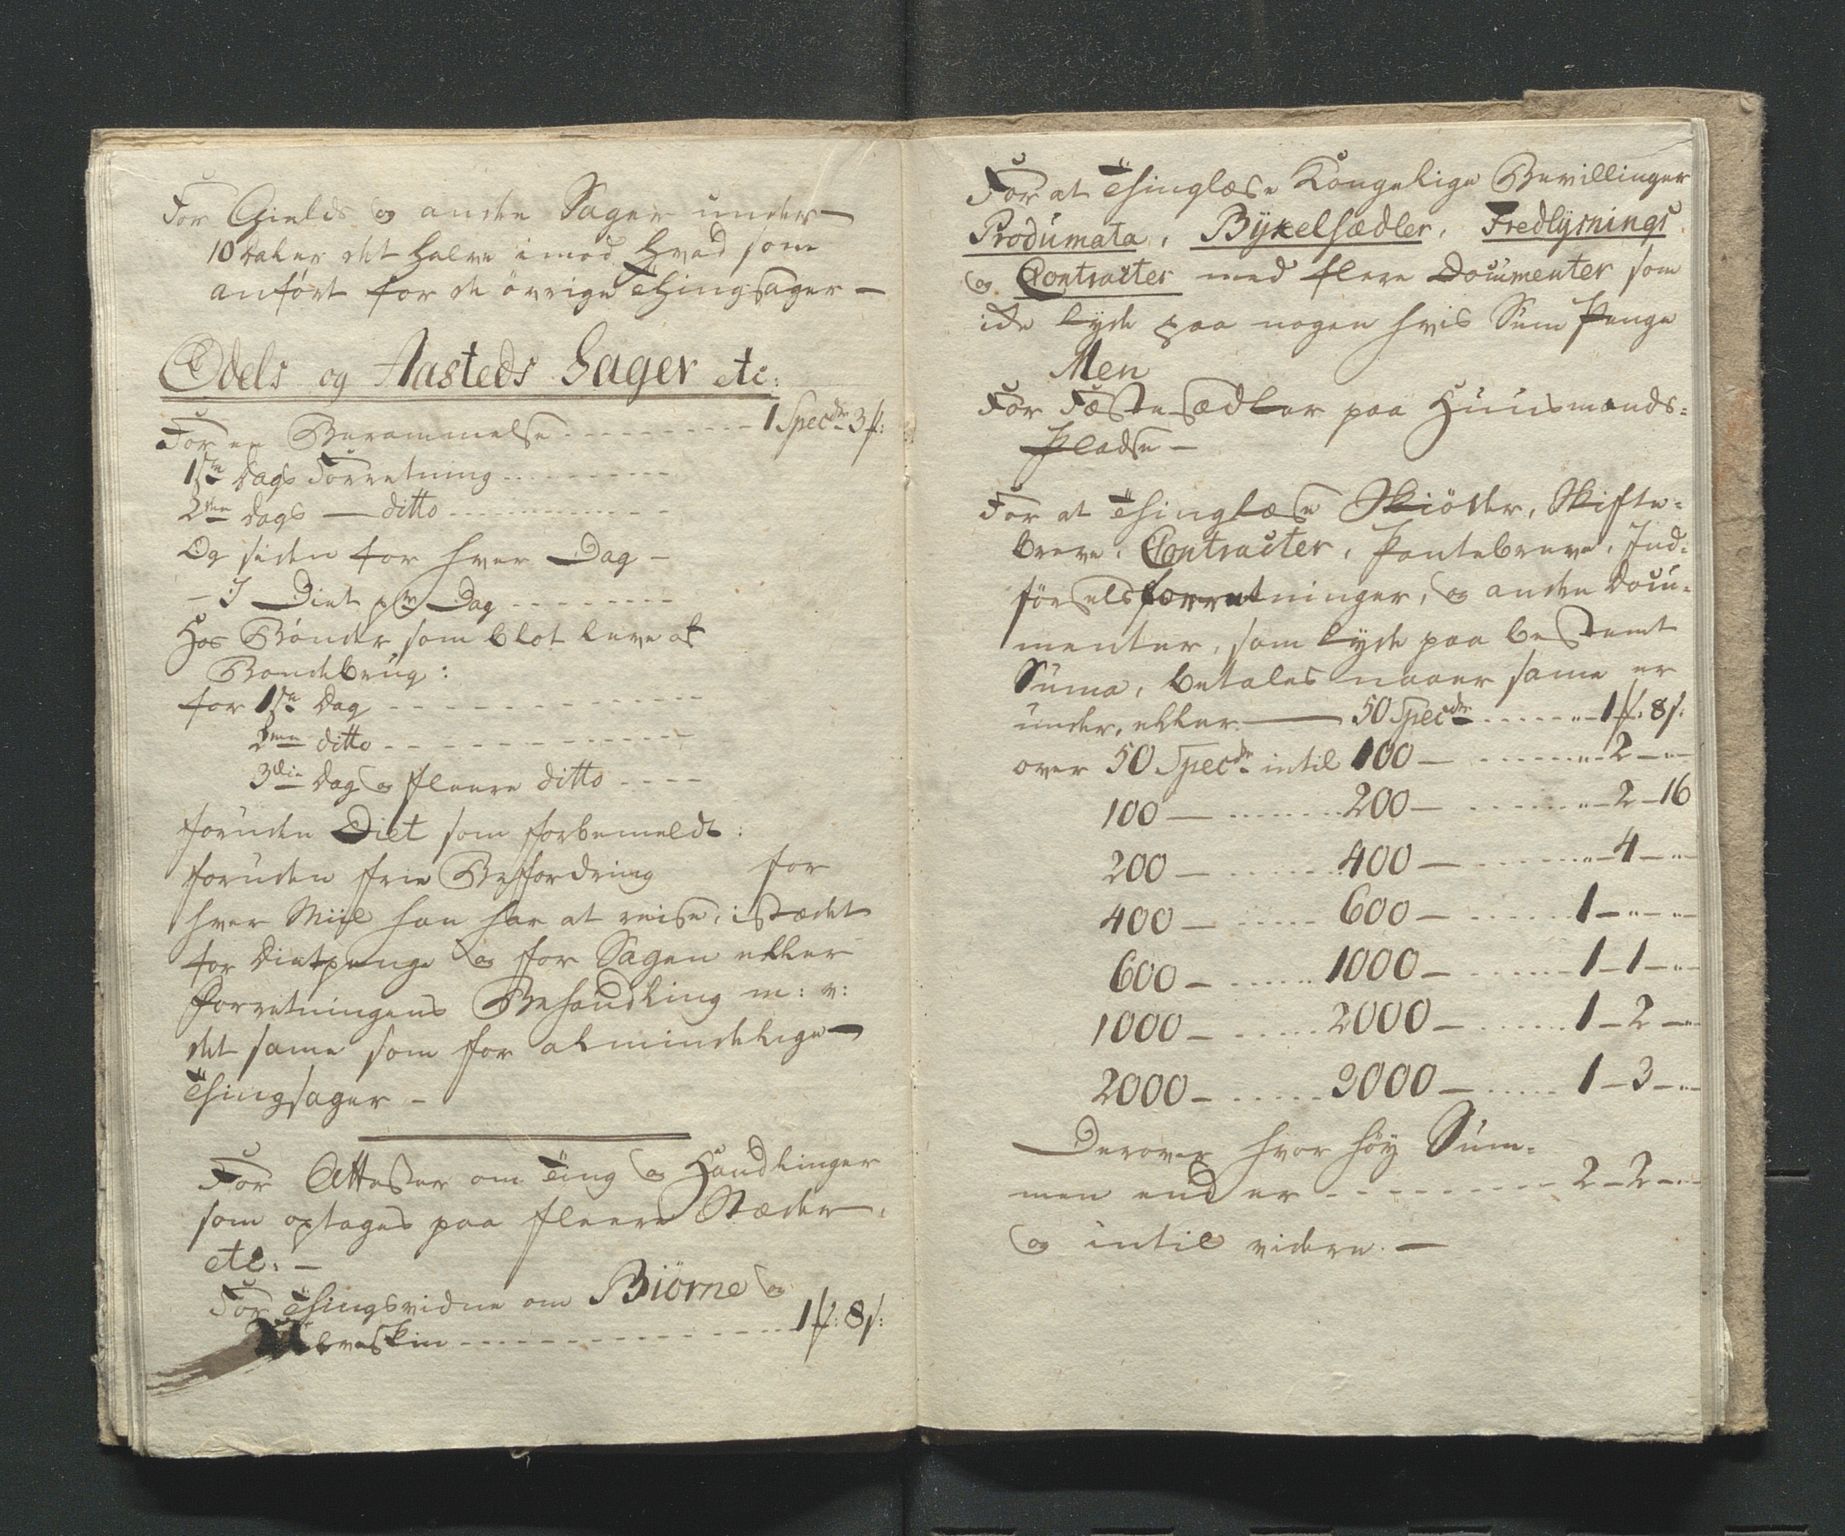 For Gields og andre Sager under
10 Daler det halve imod hvad som
anført for de övrige Thingsager —
Odels og Aasteds Sager etc:
For en Berammelse - - - 1 Specdr 3 f:
1ste Dags Forretning - - -
2den Dags — ditto - - -
Og siden for hver Dag —
— I Diet pr Dag - - -
Hos Bönder som blot leve af
Bondebrug:
for 1ste Dag - - -
2den ditto - - -
3die Dag og fleere ditto - - -
foruden Diet som forbemeldt:
foruden frie Befordring for
hver Miil han har at reise, istædet
for Dietpenge og for Sagen eller
Forretningens Behandling m: v:
det same som for almindelige
Thingsager —
For Attester om Ting og Handlinger
som optages paa fleere Stæder,
etc: —
For Thingsvidne om Biörne og
- - - 1 f: 8 s:
For at Thinglæse Kongelige Bevillinger
Produmata, Bÿxelsædler, Fredlÿsnings
og Contracter med flere Documenter som
ide lÿde paa nogen hvis Sum Penge
Men
For Fæstesædler paa Huusmands=
Pladse —
For at Thinglæse Skiöder, Skifte=
breve, Contracter, Pantebreve, Ind=
förselsforretninger, og andre Docu=
menter, som lÿde paa bestemt
Suma, betales naaer same er
under, eller — 50 Specdr - - - " 1 f: 8 s:
over 50 Specdr intil 100 — - - - " — 2 — "
100 — - - - 200 — - - - " — 2 — 16
200 — - - - 400 — - - - " — 4 — "
400 — - - - 600 — - - - 1 — " — "
600 — - - - 1000 — - - - 1 — 1 — "
1000 — - - - 2000 — - - - 1 — 2 — "
2000 — - - - 3000 — - - - 1 — 3 — "
Derover hvor höÿ Sum=
men end er - - - 2 — 2 — "
og intil videre. —